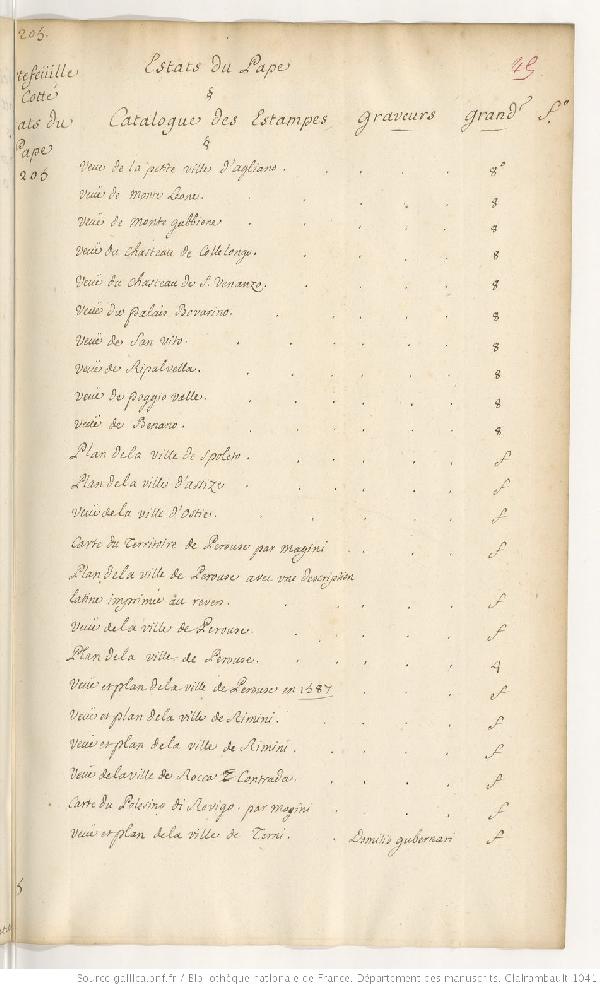 205.
tefeüille
Cotté
ats du
Pape
205
Estats du Pape
45
§
Catalogue des Estampes graveurs grandr f.o
§
Veue de la petite ville d'agliano. 8o
Veüe de monte Leone. 8
Veüe de monte gabbione 8
Veüe du chasteau de Collelongo. 8
Veüe du chasteau de S. Venanzo. 8
Veüe du palais Bovarino. 8
Veüe de San vito. 8
Veüe de Ripalvella. 8
Veüe de poggio valle. 8
Veüe de Benano. 8
Plan de la ville de Spoleto. f
Plan de la ville d'assize f
Veüe de la ville d'Ostie. f
Carte du Territoire de Perouse par magini f
Plan de la ville de Perouse avec une description
latine imprimée au revers. f
Veüe de la ville de Perouse. f
Plan de la ville de Perouse. 4
Veüe et plan de la ville de Perouse en 1587 f
Veüe et plan de la ville de Rimini. f
Veüe et plan de la ville de Rimini. f
Veüe de la ville de Rocca Contrada. f
Carte du Polesino di Rovigo. par magini f
Veüe et plan de la ville de Terni. Domitio gubernari f
5
Source gallica.bnf.fr / Bibliothèque nationale de France. Département des manuscrits. Clairambault 1041